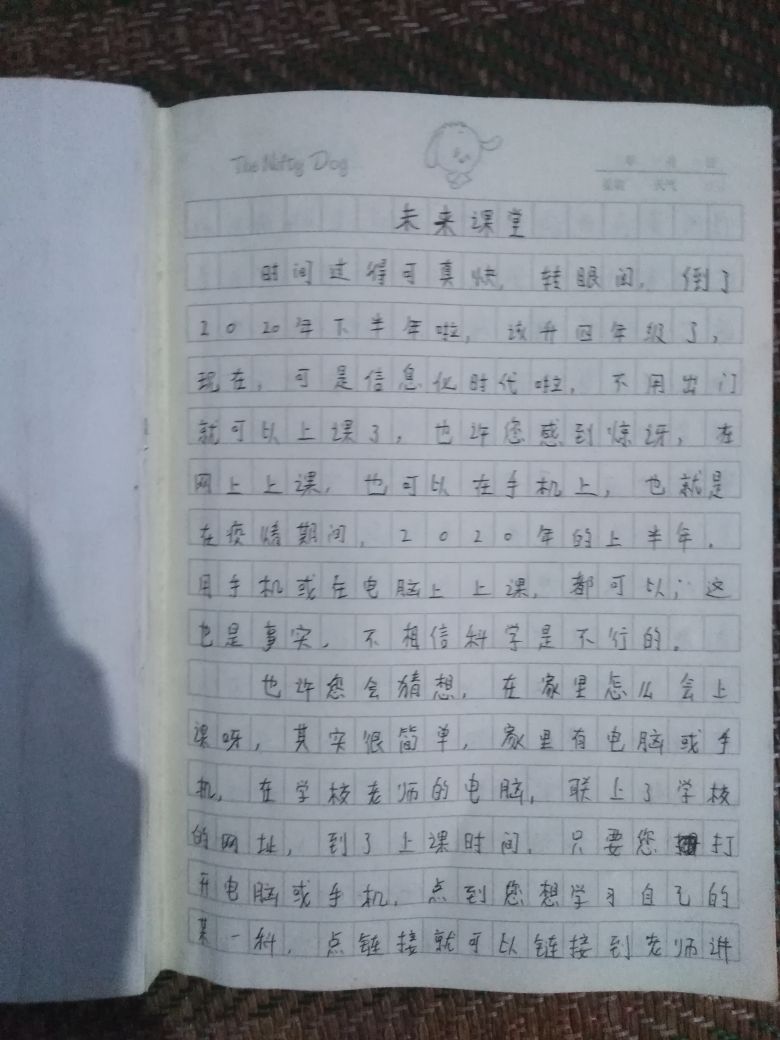 The Nifty Dog
年 月 日
星期 天气
未来课堂
时间过得可真快，转眼间，倒了
2020年下半年啦，该升四年级了，
现在，可是信息化时代啦，不用出门
就可以上课了，也许您感到惊讶，在
网上上课，也可以在手机上，也就是
在疫情期间，2020年的上半年，
用手机或在电脑上上课，都可以；这
也是事实，不相信科学是不行的。
也许您会猜想，在家里怎么会上
课呀，其实很简单，家里有电脑或手
机，在学校老师的电脑，联上了学校
的网址，到了上课时间，只要您打
开电脑或手机，点到您想学习自己的
某一科，点链接就可以链接到老师讲